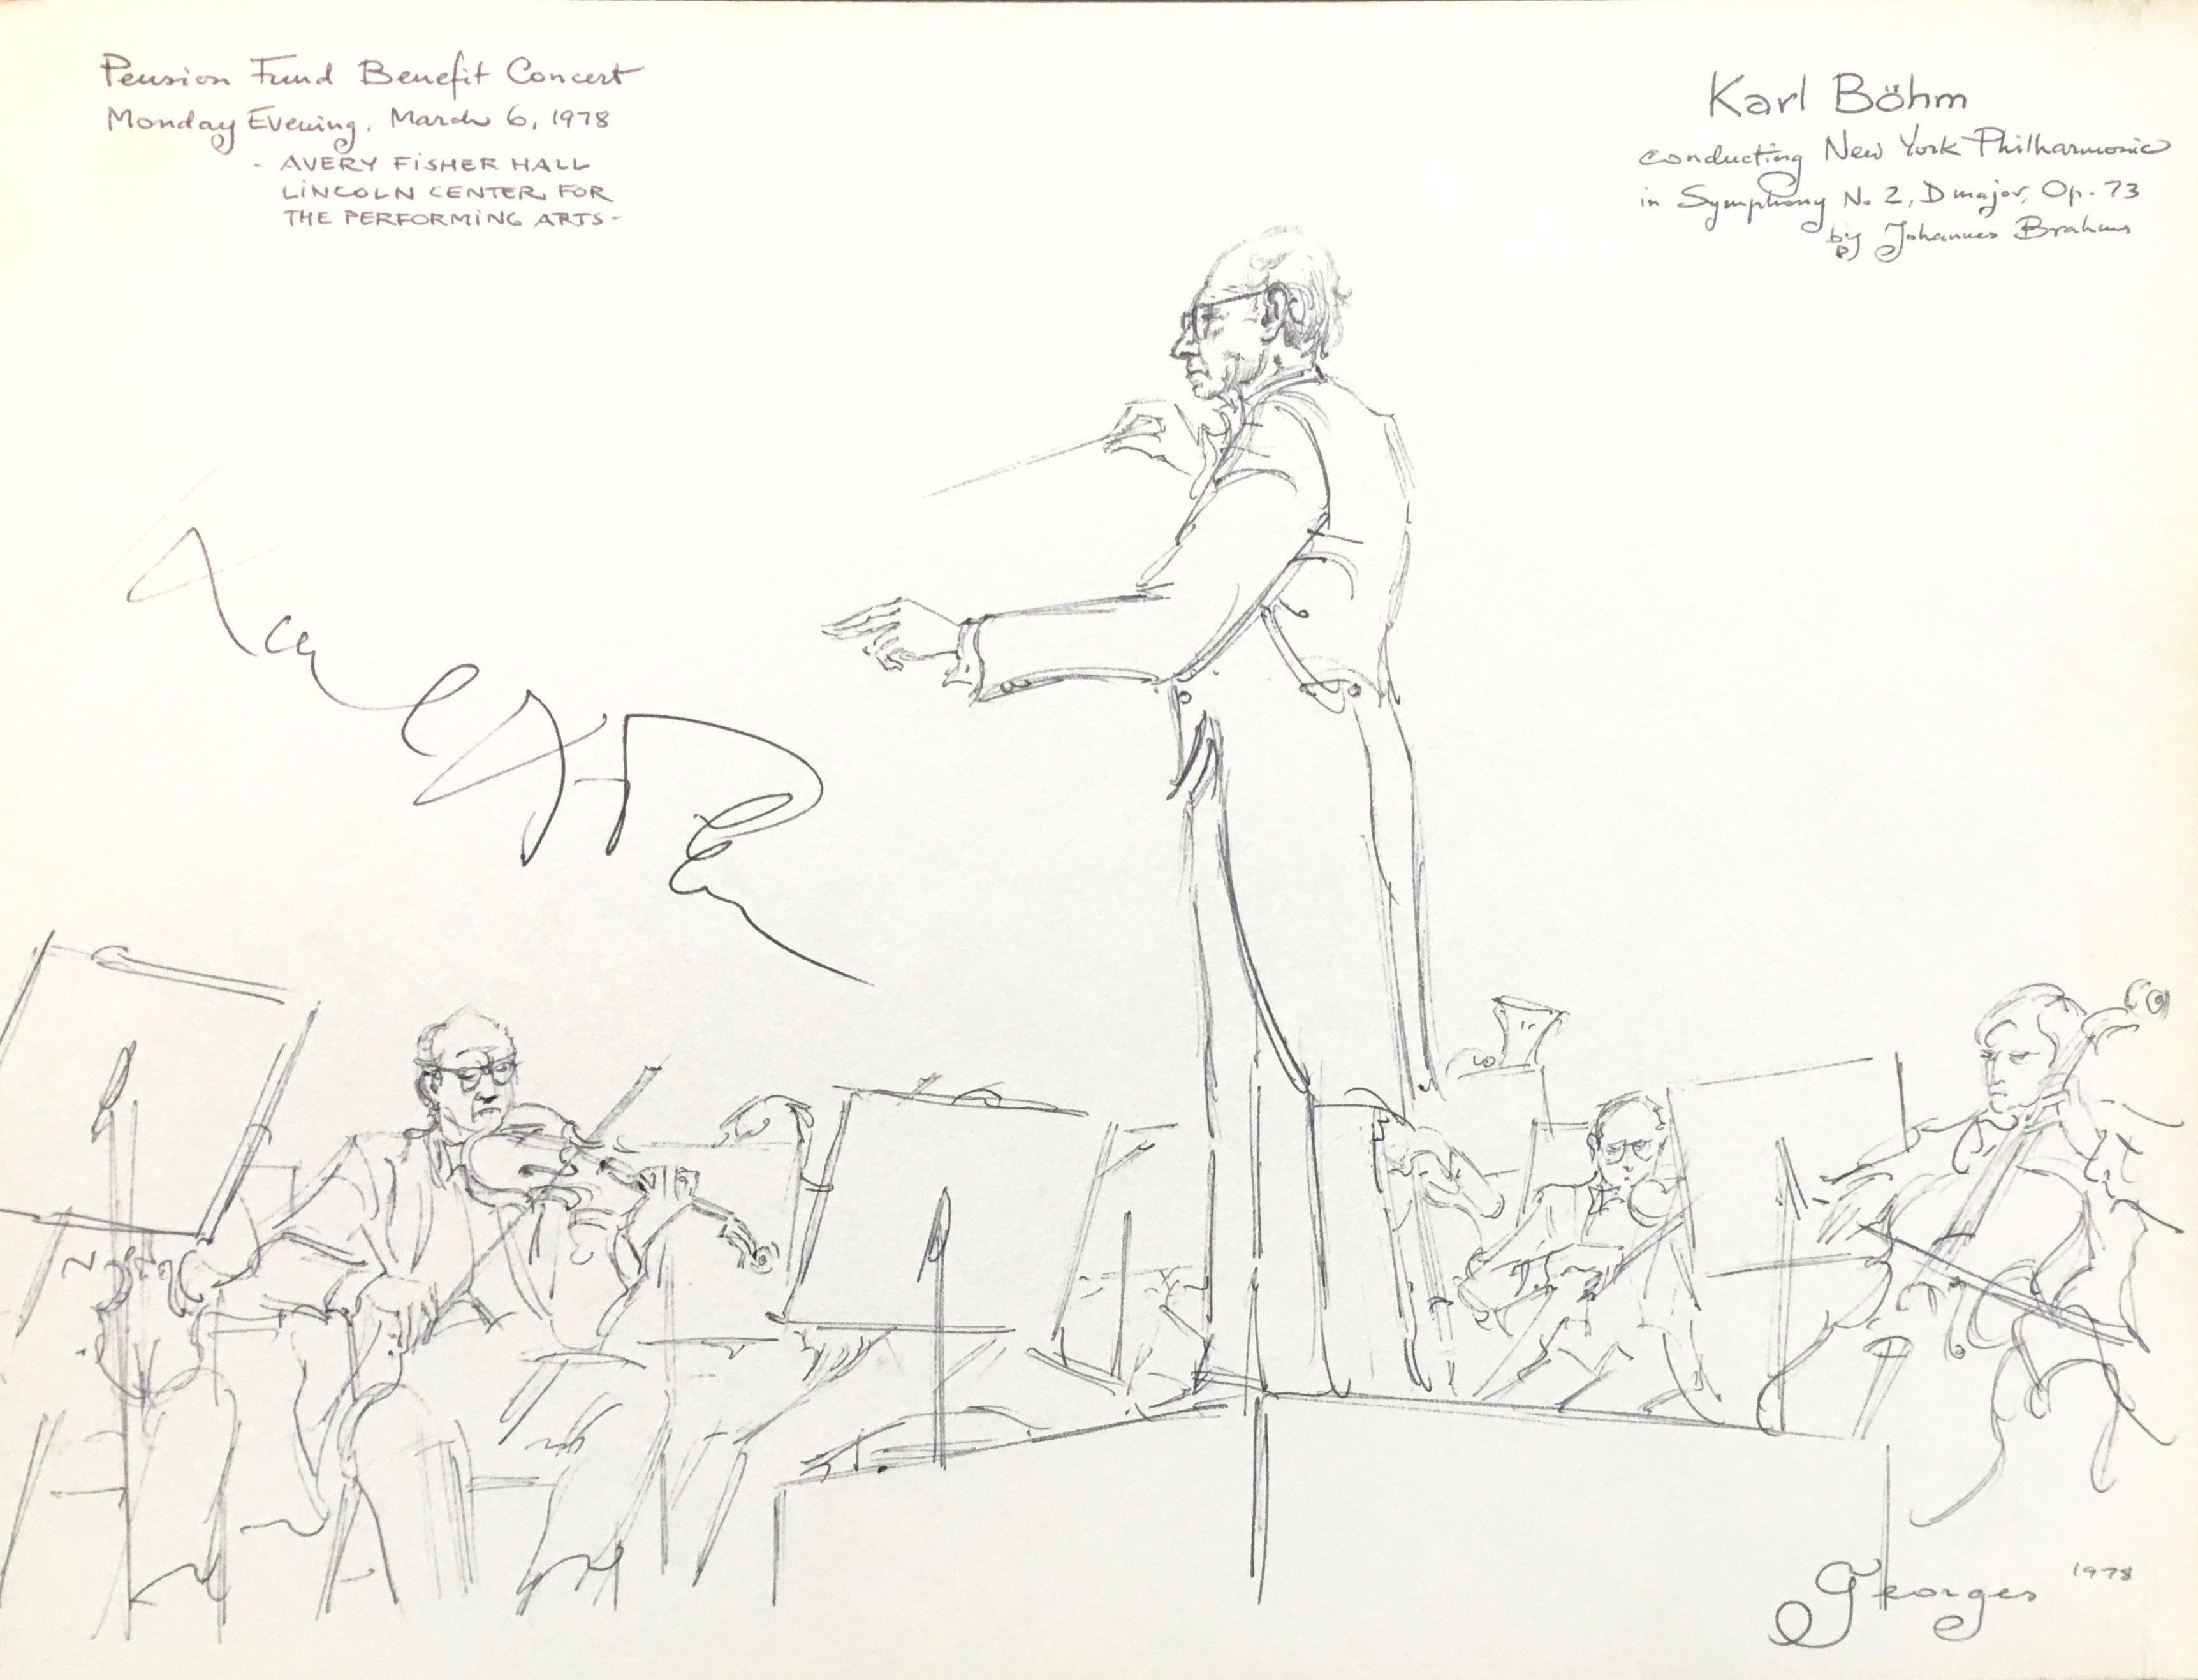 Pension Fund Benefit Concert
Monday Evening. March 6, 1978
- AVERY FISHER HALL
LINCOLN CENTER FOR
THE PERFORMING ARTS -
Karl Böhm
conducting New York Philharmonic
in Symphony No 2, D major, Op. 73
by Johannes Brahms
Karl Böhm
Georges 1978